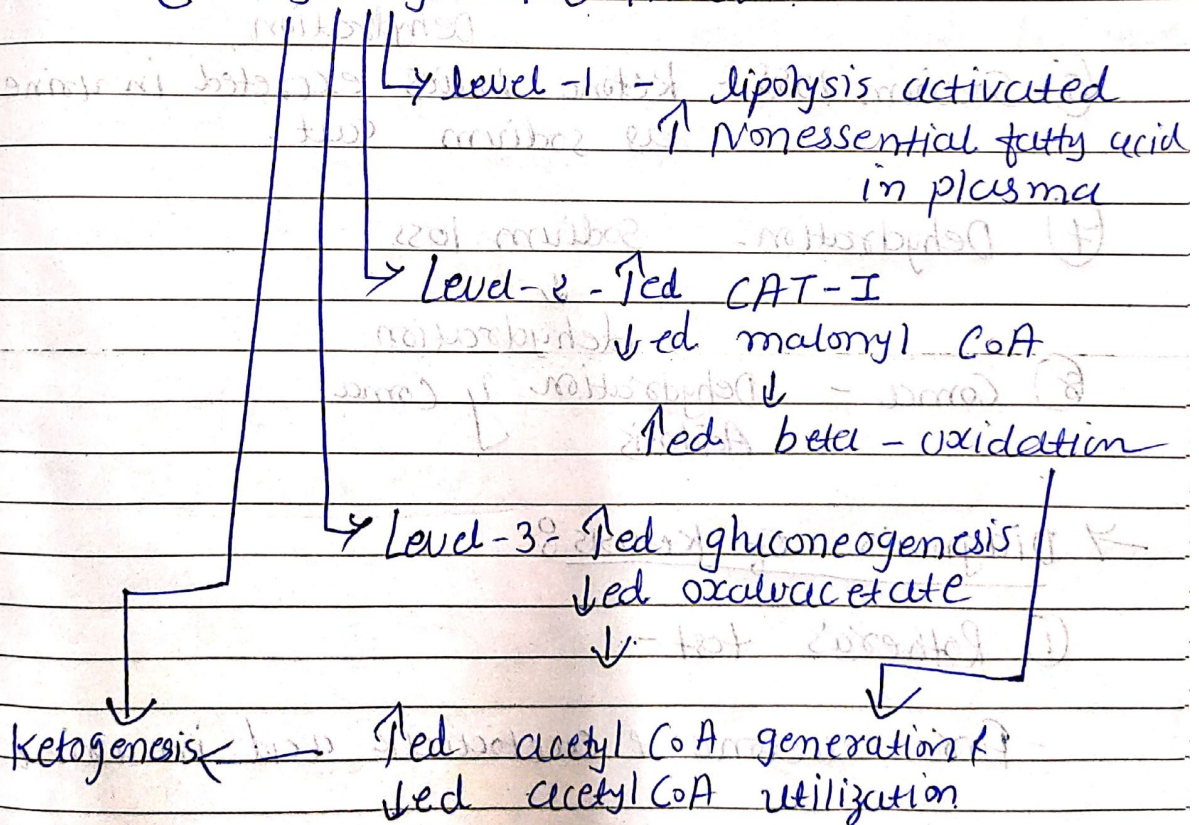 Level-1 - lipolysis activated
↑ Nonessential fatty acid
in plasma
Level-2 - ↑ed CAT-I
↓ed malonyl CoA
↓
↑ed beta-oxidation
Level-3- ↑ed gluconeogenesis
↓ed oxaloacetate
↓
Ketogenesis ← ↑ed acetyl CoA generation &
↓ed acetyl CoA utilization